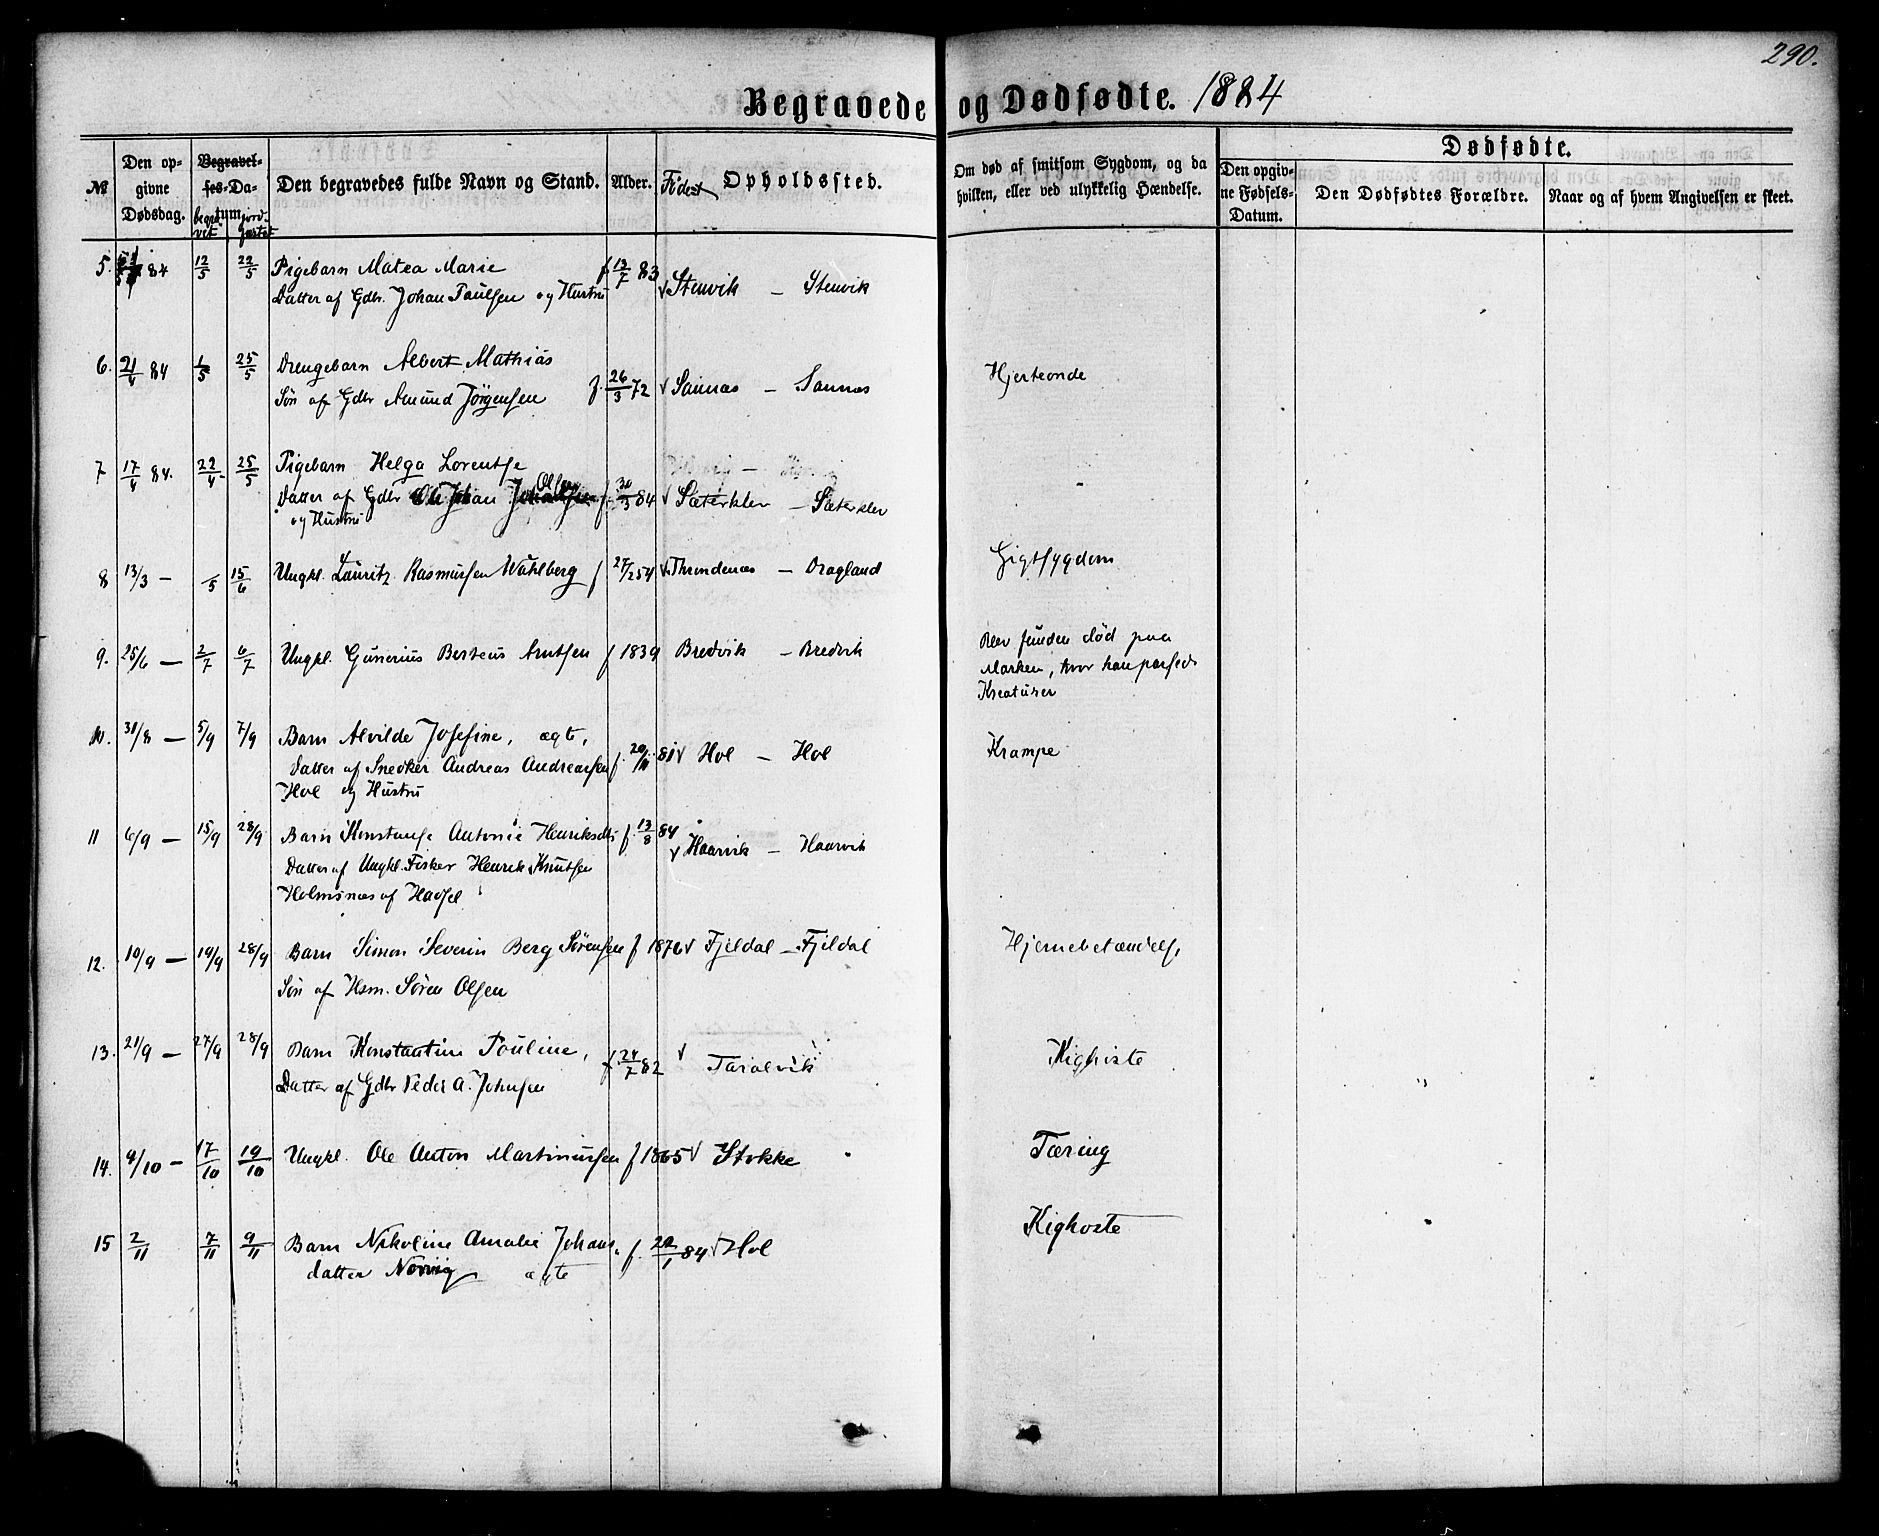 290.
Begravede og Dødfødte. 1884
No.
Den opgivne Dødsdag.
Begravelses-Datum
begravet
jordfæstet
Den begravedes fulde Navn og Stand.
Alder.
Fødest
Opholdssted.
Om død af smitsom Sygdom, og da hvilken, eller ved ulykkelig Hændelse.
Dødfødte.
Den opgivne Fødsels-Datum.
Den Dødfødtes Forældre.
Naar og af hvem Angivelsen er skeet.
5. 84 12/5 22/5 Pigebarn Matea Marie f 13/7 83
Datter af Gdbr. Johan Paulsen og Hustru Stenvik — Stenvik
6. 21/4 84 1/5 25/5 Drengebarn Albert Mathias Hjerteonde
Søn af Gdbr Amund Jörgensen f. 26/3 72 Sannæs — Sannæs
7 17/4 84. 22/4 25/5 Pigebarn Helga Lorentse
Datter af Gdbr Ole Johan Olsen f. 30/3 84 Sæterklev — Sæterklev
og Hustru
8 13/3 — /5 15/6 Ungkl. Lauritz Rasmussen Wahlberg f 27/2 54 Throndenæs — Dragland Gigtsygdom
9. 25/6 — 2/7 6/7 Ungkl. Gunerius Berteus Arntsen f 1839 Bredvik — Bredvik Blev funden død paa
Marken, hvor han passede
Kreaturer
10. 31/8 — 5/9 7/9 Barn Alvilde Josefine, ægte,
Datter af Snedker Andreas Andreassen f. 20/11 81 Hol — Hol Krampe
Hol og Hustru
11 6/9 — 15/9 28/9 Barn Konstanse Antonie Henriksdtr f. 13/8 84
Datter af Ungkl. Fisker Henrik Knutsen Haarvik — Haarvik
Holmsnæs af Hadsel
12. 10/9 — 19/9 28/9 Barn Simon Severin Berg Sørensen f 1876 Fjeldal — Fjeldal Hjernebetændelse
Søn af Hsm. Søren Olsen
13. 21/9 — 27/9 28/9 Barn Konstantine Pouline,
Datter af Gdbr Peder A. Johnsen f. 24/7 82 Taraldvik Kighoste
14. 9/10 — 17/10 19/10 Ungkl. Ole Anton Martinussen f 1865 Stokke Tæring
15 2/11 7/11 9/11 Barn Nikoline Amalie Johans- f. 20/1 84 Hol Kighoste
datter Norvig ægte